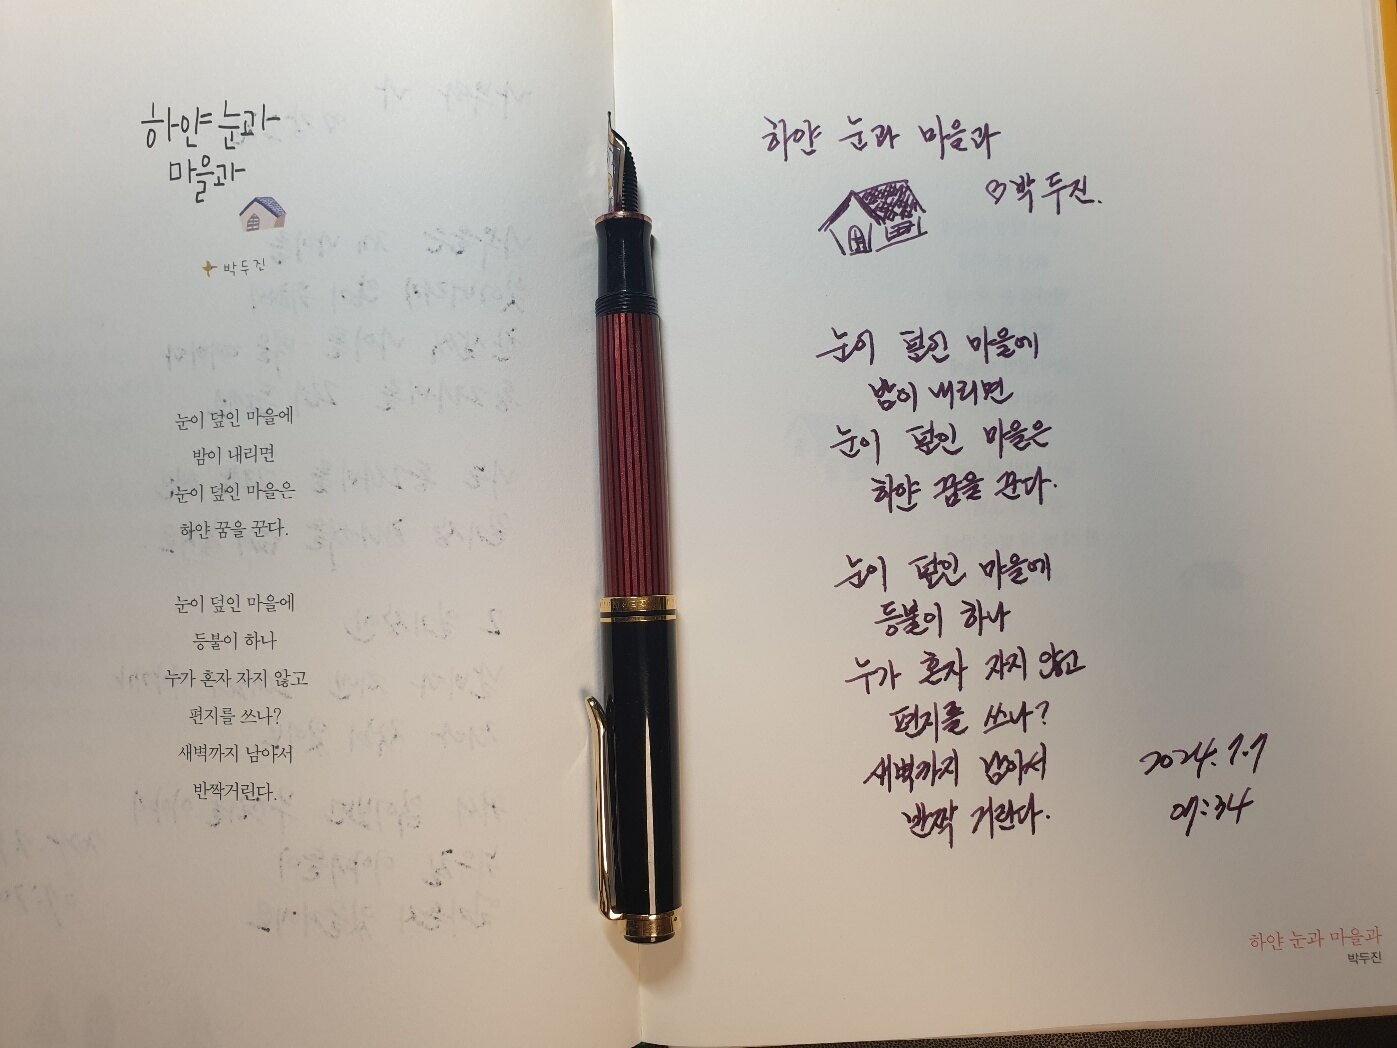 하얀 눈과
마을과
박두진
눈이 덮인 마을에
밤이 내리면
눈이 덮인 마을은
하얀 꿈을 꾼다.
눈이 덮인 마을에
등불이 하나
누가 혼자 자지 않고
편지를 쓰나?
새벽까지 남아서
반짝거린다.
하얀 눈과 마을과
박두진.
눈이 덮인 마을에
밤이 내리면
눈이 덮인 마을은
하얀 꿈을 꾼다.
눈이 덮인 마을에
등불이 하나
누가 혼자 자지 않고
편지를 쓰나?
새벽까지 남아서
반짝 거린다.
2024.7.7
07:34
하얀 눈과 마을과
박두진